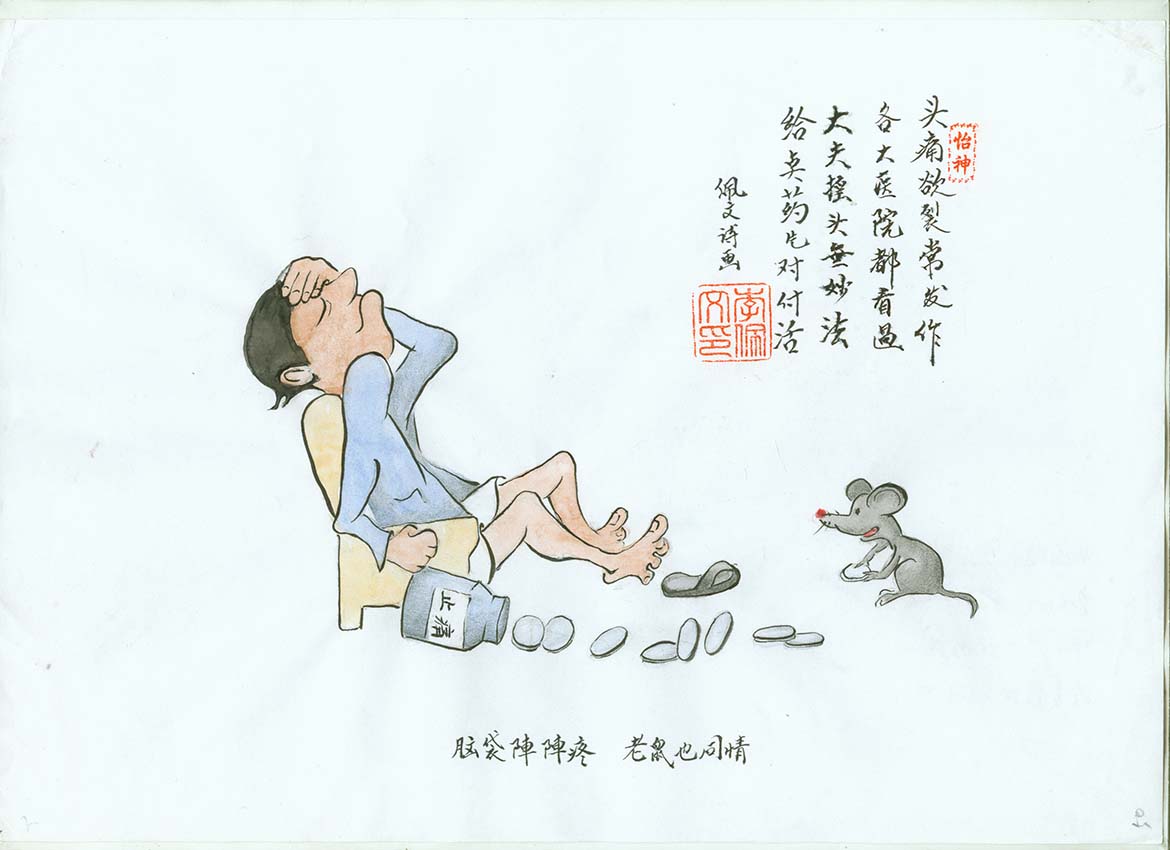 怡神
头痛欲裂常发作
各大医院都看过
大夫摇头無妙法
给点药片对付活
佩文诗画
李佩文印
止痛
脑袋陣陣疼 老鼠也同情